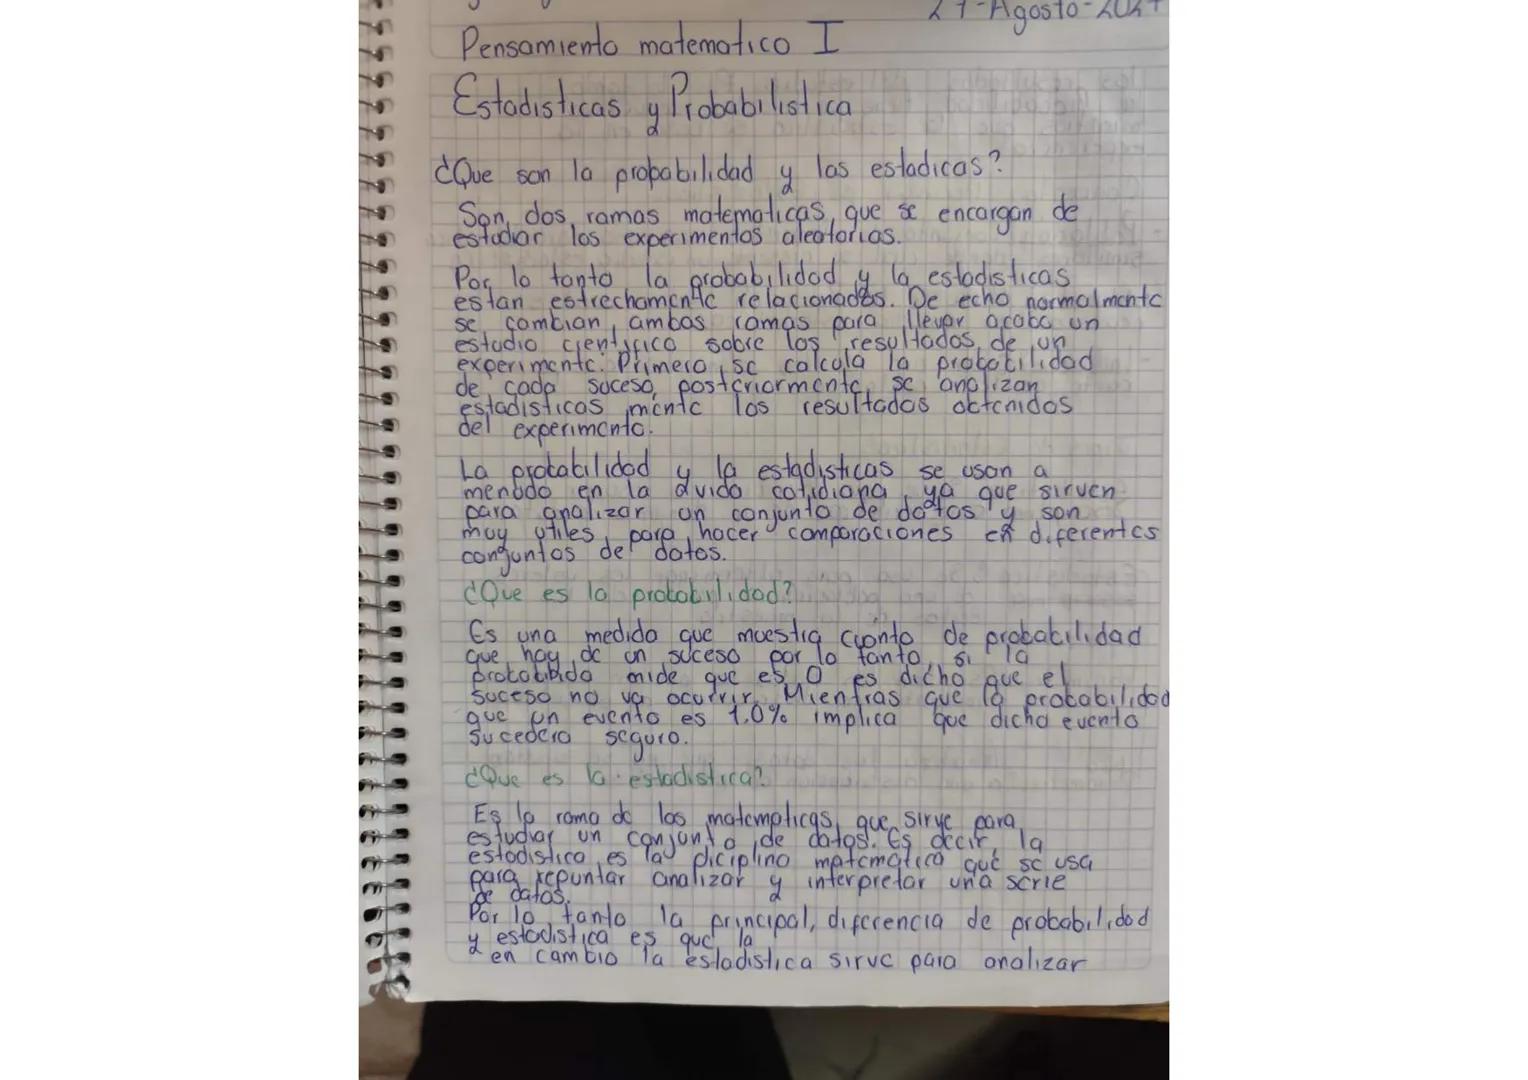 Agosto
Pensamiento matematico I
Estadisticas y Probabilistica
¿Que son la probabilidad y las estadicas?
Son dos ramas matematicas que se encargan de
estudiar los experimentos aleatorios.
Por lo tanto la probabilidad y la estadisticas
estan estrechamente relacionados. De echo normalmente
se combian ambas ramas para llevar acabo un
estudio cientifico sobre los resultados de un
experimente. Primero se calcula la probabilidad
de cada suceso, posteriormente se analizan
estadisticas mente los resultados obtenidos
del experimento.
La probabilidad y la estadisticas se usan a
menudo en la avida cotidiana ya que sirven
para analizar un conjunto de datos y son
muy utiles para hacer comparaciones en diferentes
conjuntos de datos.
¿Que es la probabilidad?
Es una medida que muestra cuanto de probabilidad
que hay de un suceso por lo tanto si la
probabibido mide que es 0 es dicho que el
suceso no va ocurrir. Mientras que la probabilidad
que un evento es 1.0% implica que dicho evento
sucedera seguro.
¿Que es la estadistica?
Es la rama de las matematicas que sirve para
estudiar un conjunto de datos. Es decir, la
estadistica es la diciplina matematica que se usa
para repuntar analizar y interpretar una serie
de datos.
Por lo tanto la principal, diferencia de probabilidad
y estadistica es que la
en cambio la estadistica sirve para analizar